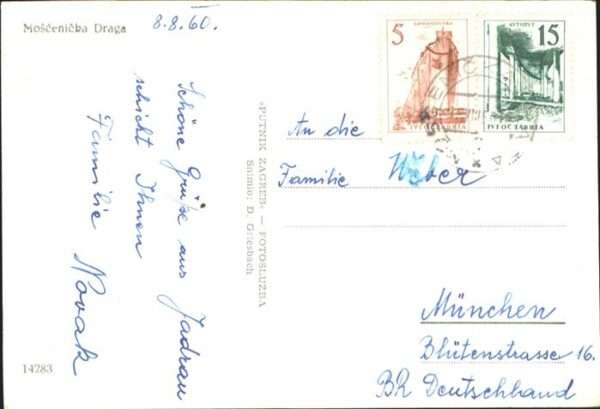 Mošćenička Draga
8.8.60.
Schöne Grüße aus Jadran
schickt Ihnen
Familie Novak
14283
»PUTNIK ZAGREB« — FOTOSLUŽBA
Snimio: D. Griesbach
5
15
JUGOSLAVIJA
An die
Familie Weber
München
Blütenstrasse 16.
BR Deutschland